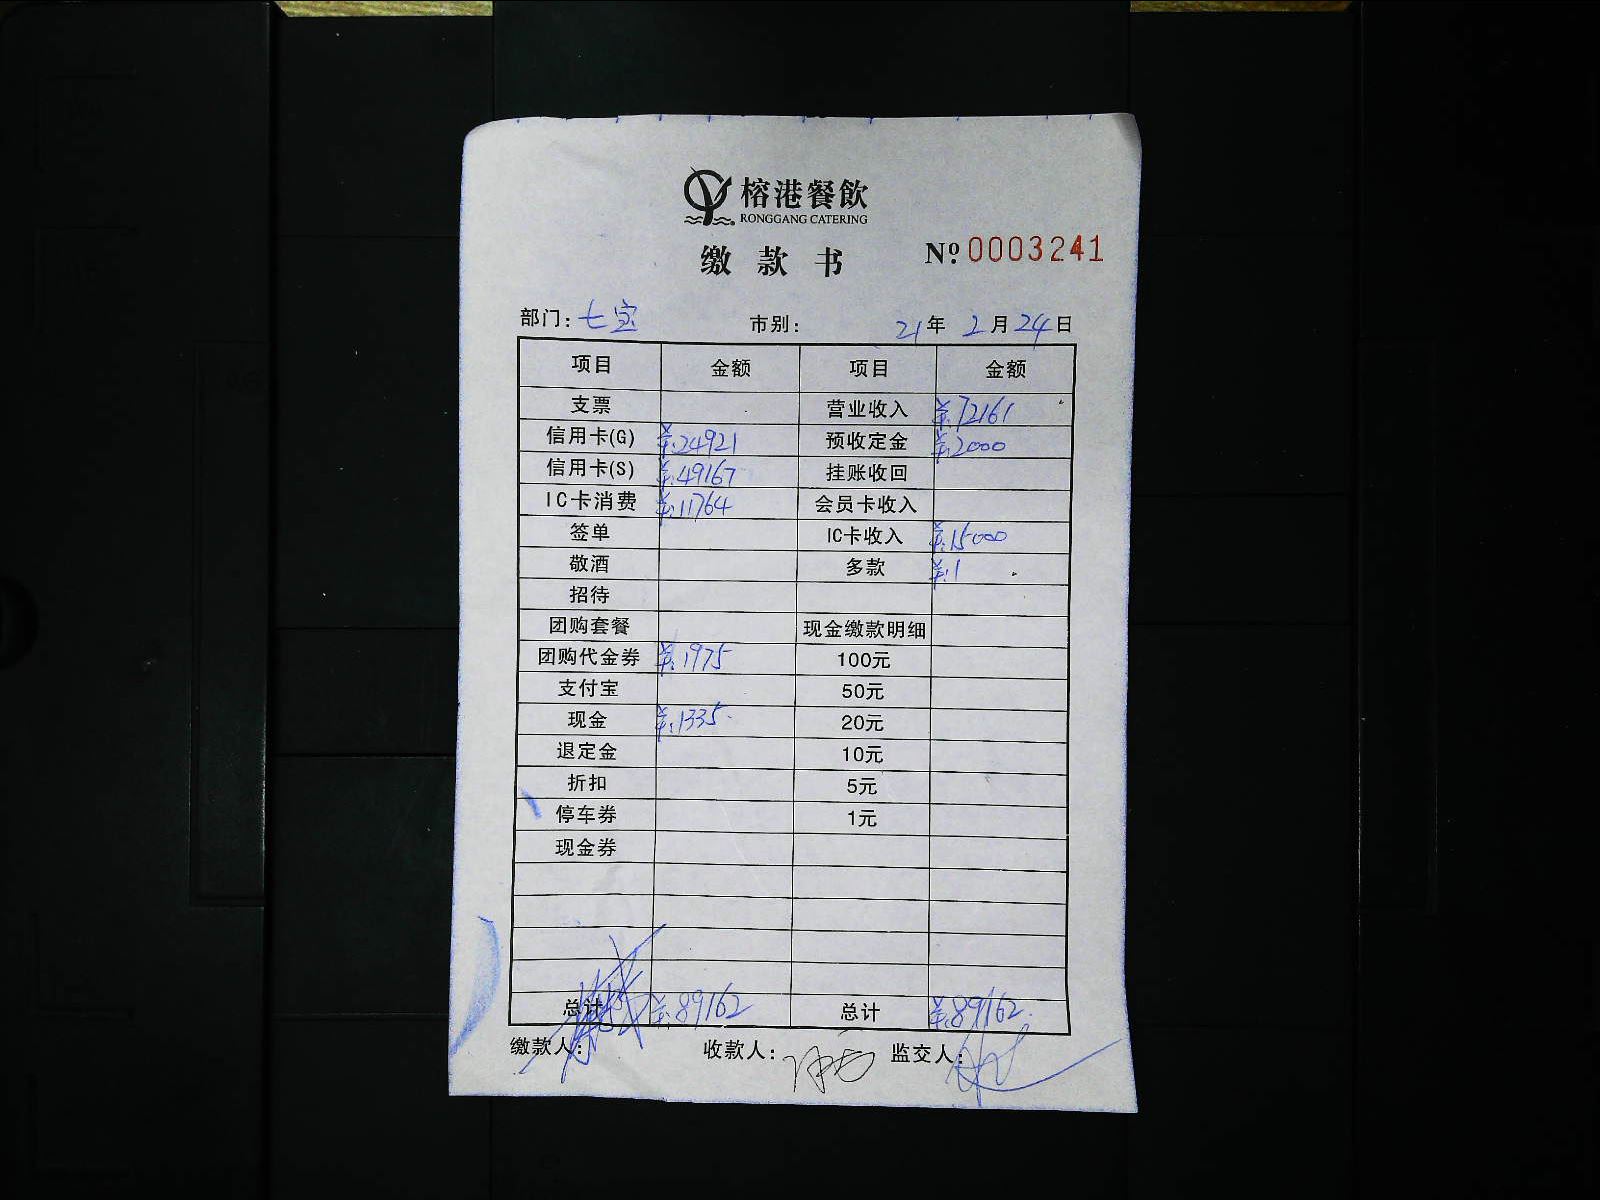 榕港餐飲
RONGGANG CATERING
缴款书 №0003241
部门: 七宝 市别: 21年 2月24日
项目 金额 项目 金额
支票 营业收入 ¥:72161
信用卡(G) ¥:24921 预收定金 ¥:2000
信用卡(S) ¥:49167 挂账收回
IC卡消费 ¥:11764 会员卡收入
签单 IC卡收入 ¥:15000
敬酒 多款 ¥:1
招待
团购套餐 现金缴款明细
团购代金券 ¥:1975 100元
支付宝 50元
现金 ¥:1335. 20元
退定金 10元
折扣 5元
停车券 1元
现金券
总计 ¥:89162 总计 ¥:89162.
缴款人: 收款人: 监交人: